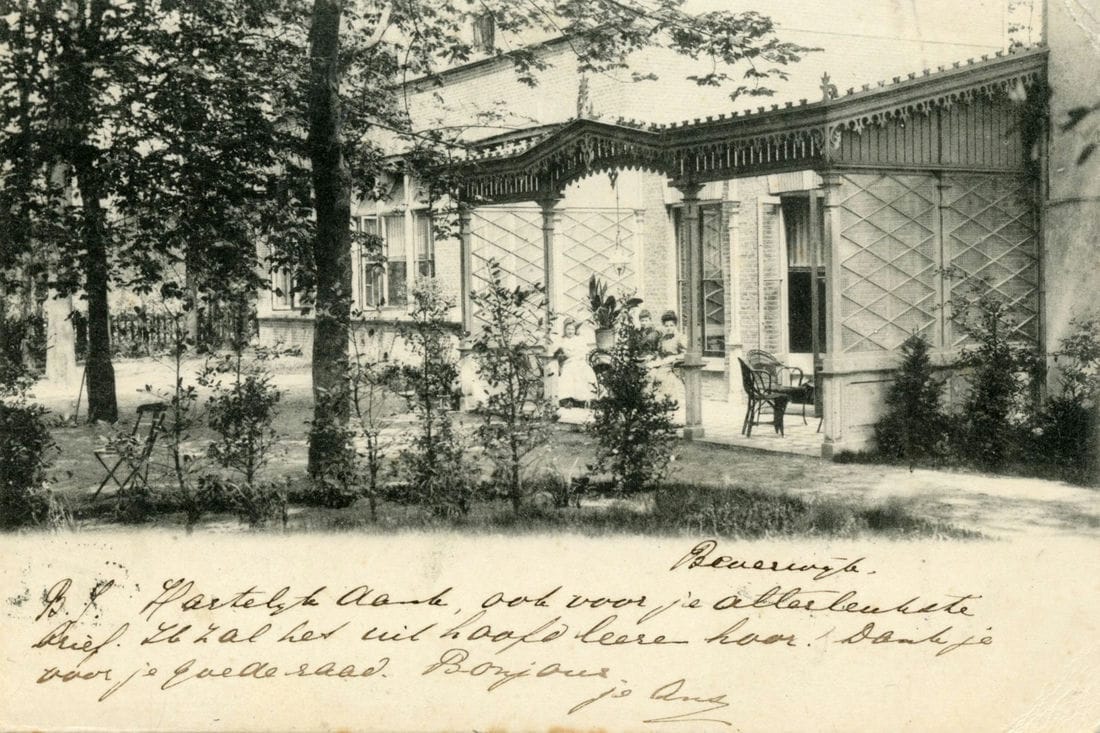 Beverwijk.
B J. Hartelijk dank, ook voor je allerleukste
brief. Ik zal het uit hoofd leere hoor! Dank je
voor je goede raad. Bonjour
je Ans